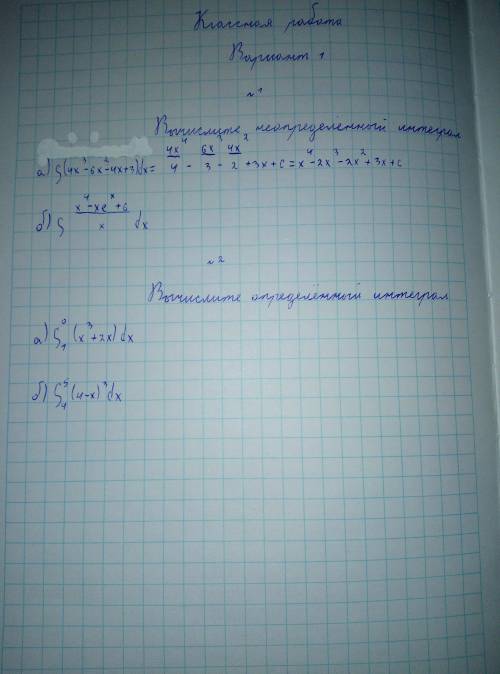 Классная работа
Вариант 1
№1
Вычислите неопределенный интеграл
а) ∫(4x³-6x²-4x+3)dx = 4x⁴/4 - 6x³/3 - 4x²/2 + 3x + c = x⁴ - 2x³ - 2x² + 3x + c
б) ∫ (x⁴-xeˣ+6)/x dx
№2
Вычислите определённый интеграл
а) ∫₁⁰ (x³+2x)dx
б) ∫₄⁵ (4-x)³dx